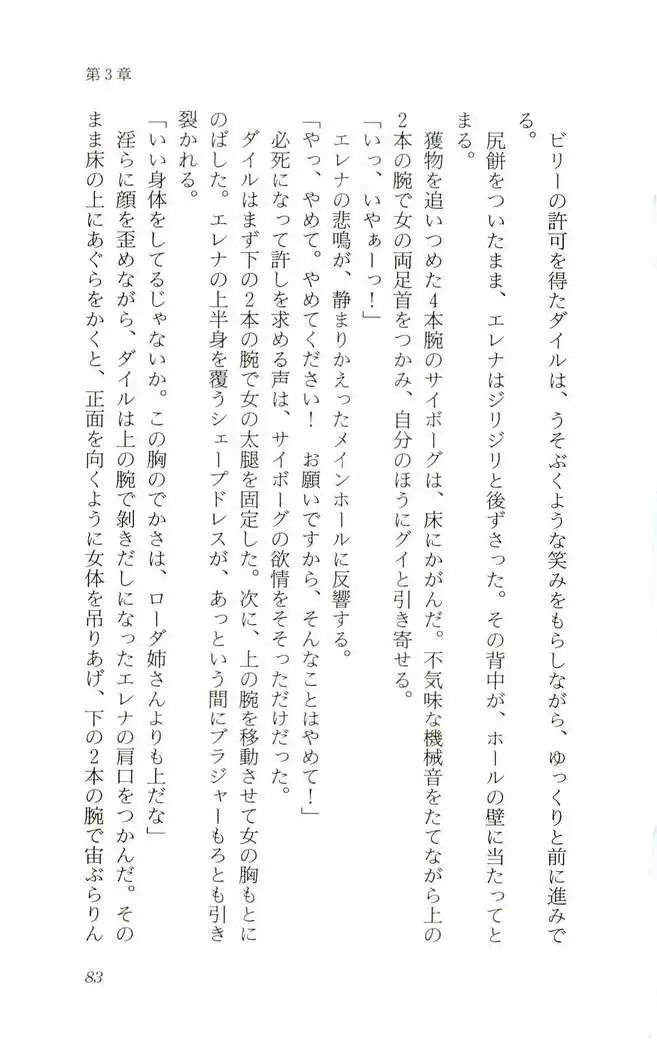 第3章
ビリーの許可を得たダイルは、うそぶくような笑みをもらしながら、ゆっくりと前に進みで
る。
尻餅をついたまま、エレナはジリジリと後ずさった。その背中が、ホールの壁に当たってと
まる。
獲物を追いつめた4本腕のサイボーグは、床にかがんだ。不気味な機械音をたてながら上の
2本の腕で女の両足首をつかみ、自分のほうにグイと引き寄せる。
「いっ、いやぁーっ！」
エレナの悲鳴が、静まりかえったメインホールに反響する。
「やっ、やめて。やめてください！　お願いですから、そんなことはやめて！」
必死になって許しを求める声は、サイボーグの欲情をそそっただけだった。
ダイルはまず下の2本の腕で女の太腿を固定した。次に、上の腕を移動させて女の胸もとに
のばした。エレナの上半身を覆うシェープドレスが、あっという間にブラジャーもろとも引き
裂かれる。
「いい身体をしてるじゃないか。この胸のでかさは、ローダ姉さんよりも上だな」
淫らに顔を歪めながら、ダイルは上の腕で剝きだしになったエレナの肩口をつかんだ。その
まま床の上にあぐらをかくと、正面を向くように女体を吊りあげ、下の2本の腕で宙ぶらりん
83